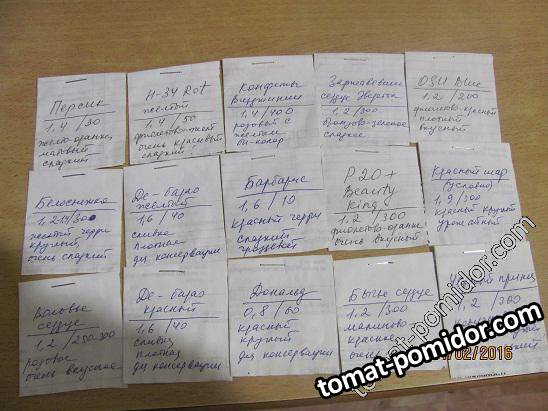 Персик
1,4 / 30
желто-оранж,
матовый
сладкий
H-34 Rot
желтый
1,4 / 50
фиолетово-желт
очень красивый
сладкий
Конфеты
Вирджинии
1,4 / 400
розовый с
желтым
би-колор
Заржавевшее
сердце Эверета
1,2 / 300
сладкое
OSU Blue
1,2 / 200
фиолетово-красный
плотный
вкусный
Белоснежка
желтый черри
круглый,
очень сладкий
Де-барао
желтый
1,6 / 40
сливка
плотная
для консервации
Барбарис
1,6 / 10
красный черри
сладкий
P20+
Beauty
King
1,2 / 300
очень вкусный
Красный шар
(условно)
1,9 / 300
красный круглый
урожайный
Воловье
сердце
1,2 / 250-300
розовое
очень вкусное
Де-барао
красный
1,6 / 40
сливка
плотная
для консервации
Дональд
0,8 / 60
красный
круглый
для консервации
Бычье сердце
1,2 / 300
малиново-
красное
очень
принц
1,2 / 300
/02/2016
tomat-pomidor.com